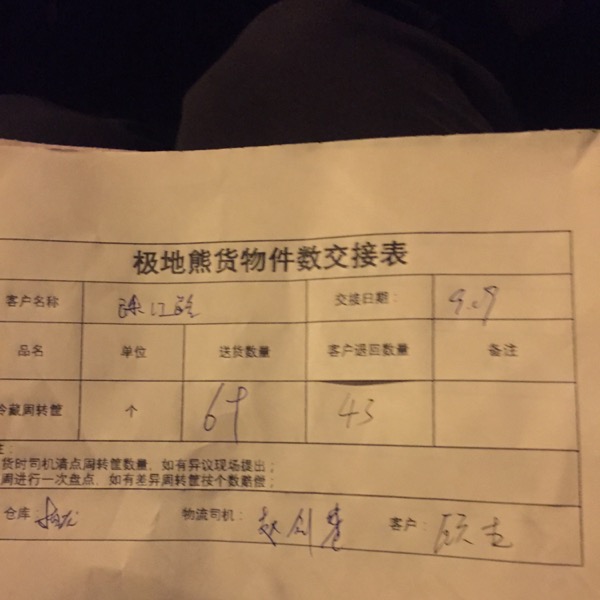 极地熊货物件数交接表
客户名称 交接日期： 9.09
品名 单位 送货数量 客户退回数量 备注
冷藏周转筐 个 43
货时司机清点周转筐数量，如有异议现场提出；
周进行一次盘点，如有差异周转筐按个数赔偿；
仓库： 物流司机： 客户：